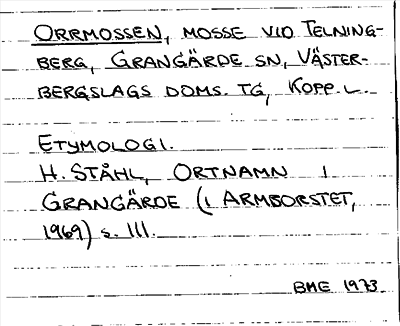 ORRMOSSEN, MOSSE VID TELNING-
BERG, GRANGÄRDE SN, VÄSTER-
BERGSLAGS DOMS. TG, KOPP. L.
ETYMOLOGI.
H. STÅHL, ORTNAMN I
GRANGÄRDE (I ARMBORSTET,
1969) s. 111.
BME 1973.